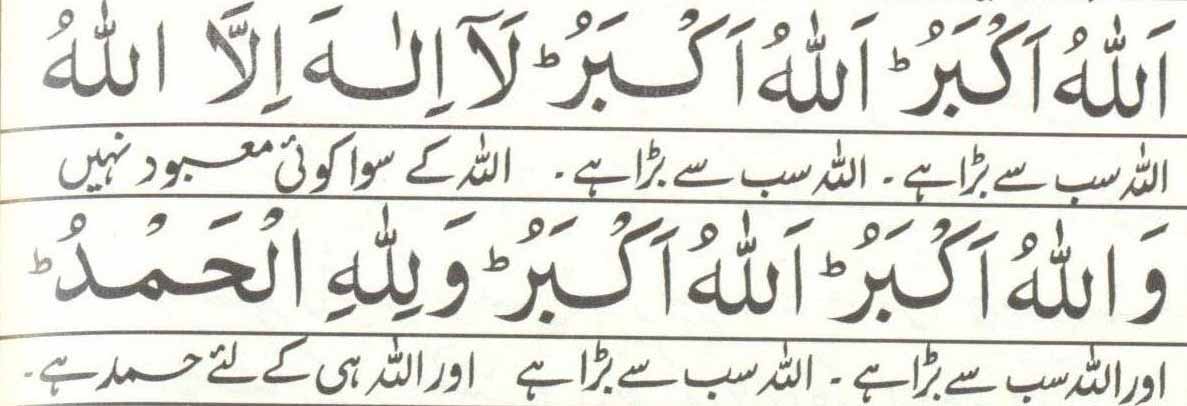 اَللّٰهُ اَكْبَرُ ؕ اَللّٰهُ اَكْبَرُ ؕ لَآ اِلٰهَ اِلَّا اللّٰهُ
اللہ سب سے بڑا ہے ۔ اللہ سب سے بڑا ہے ۔ اللہ کے سوا کوئی معبود نہیں
وَاللّٰهُ اَكْبَرُ ؕ اَللّٰهُ اَكْبَرُ ؕ وَلِلّٰهِ الْحَمْدُ ؕ
اور اللہ سب سے بڑا ہے ۔ اللہ سب سے بڑا ہے اور اللہ ہی کے لئے حمد ہے ۔